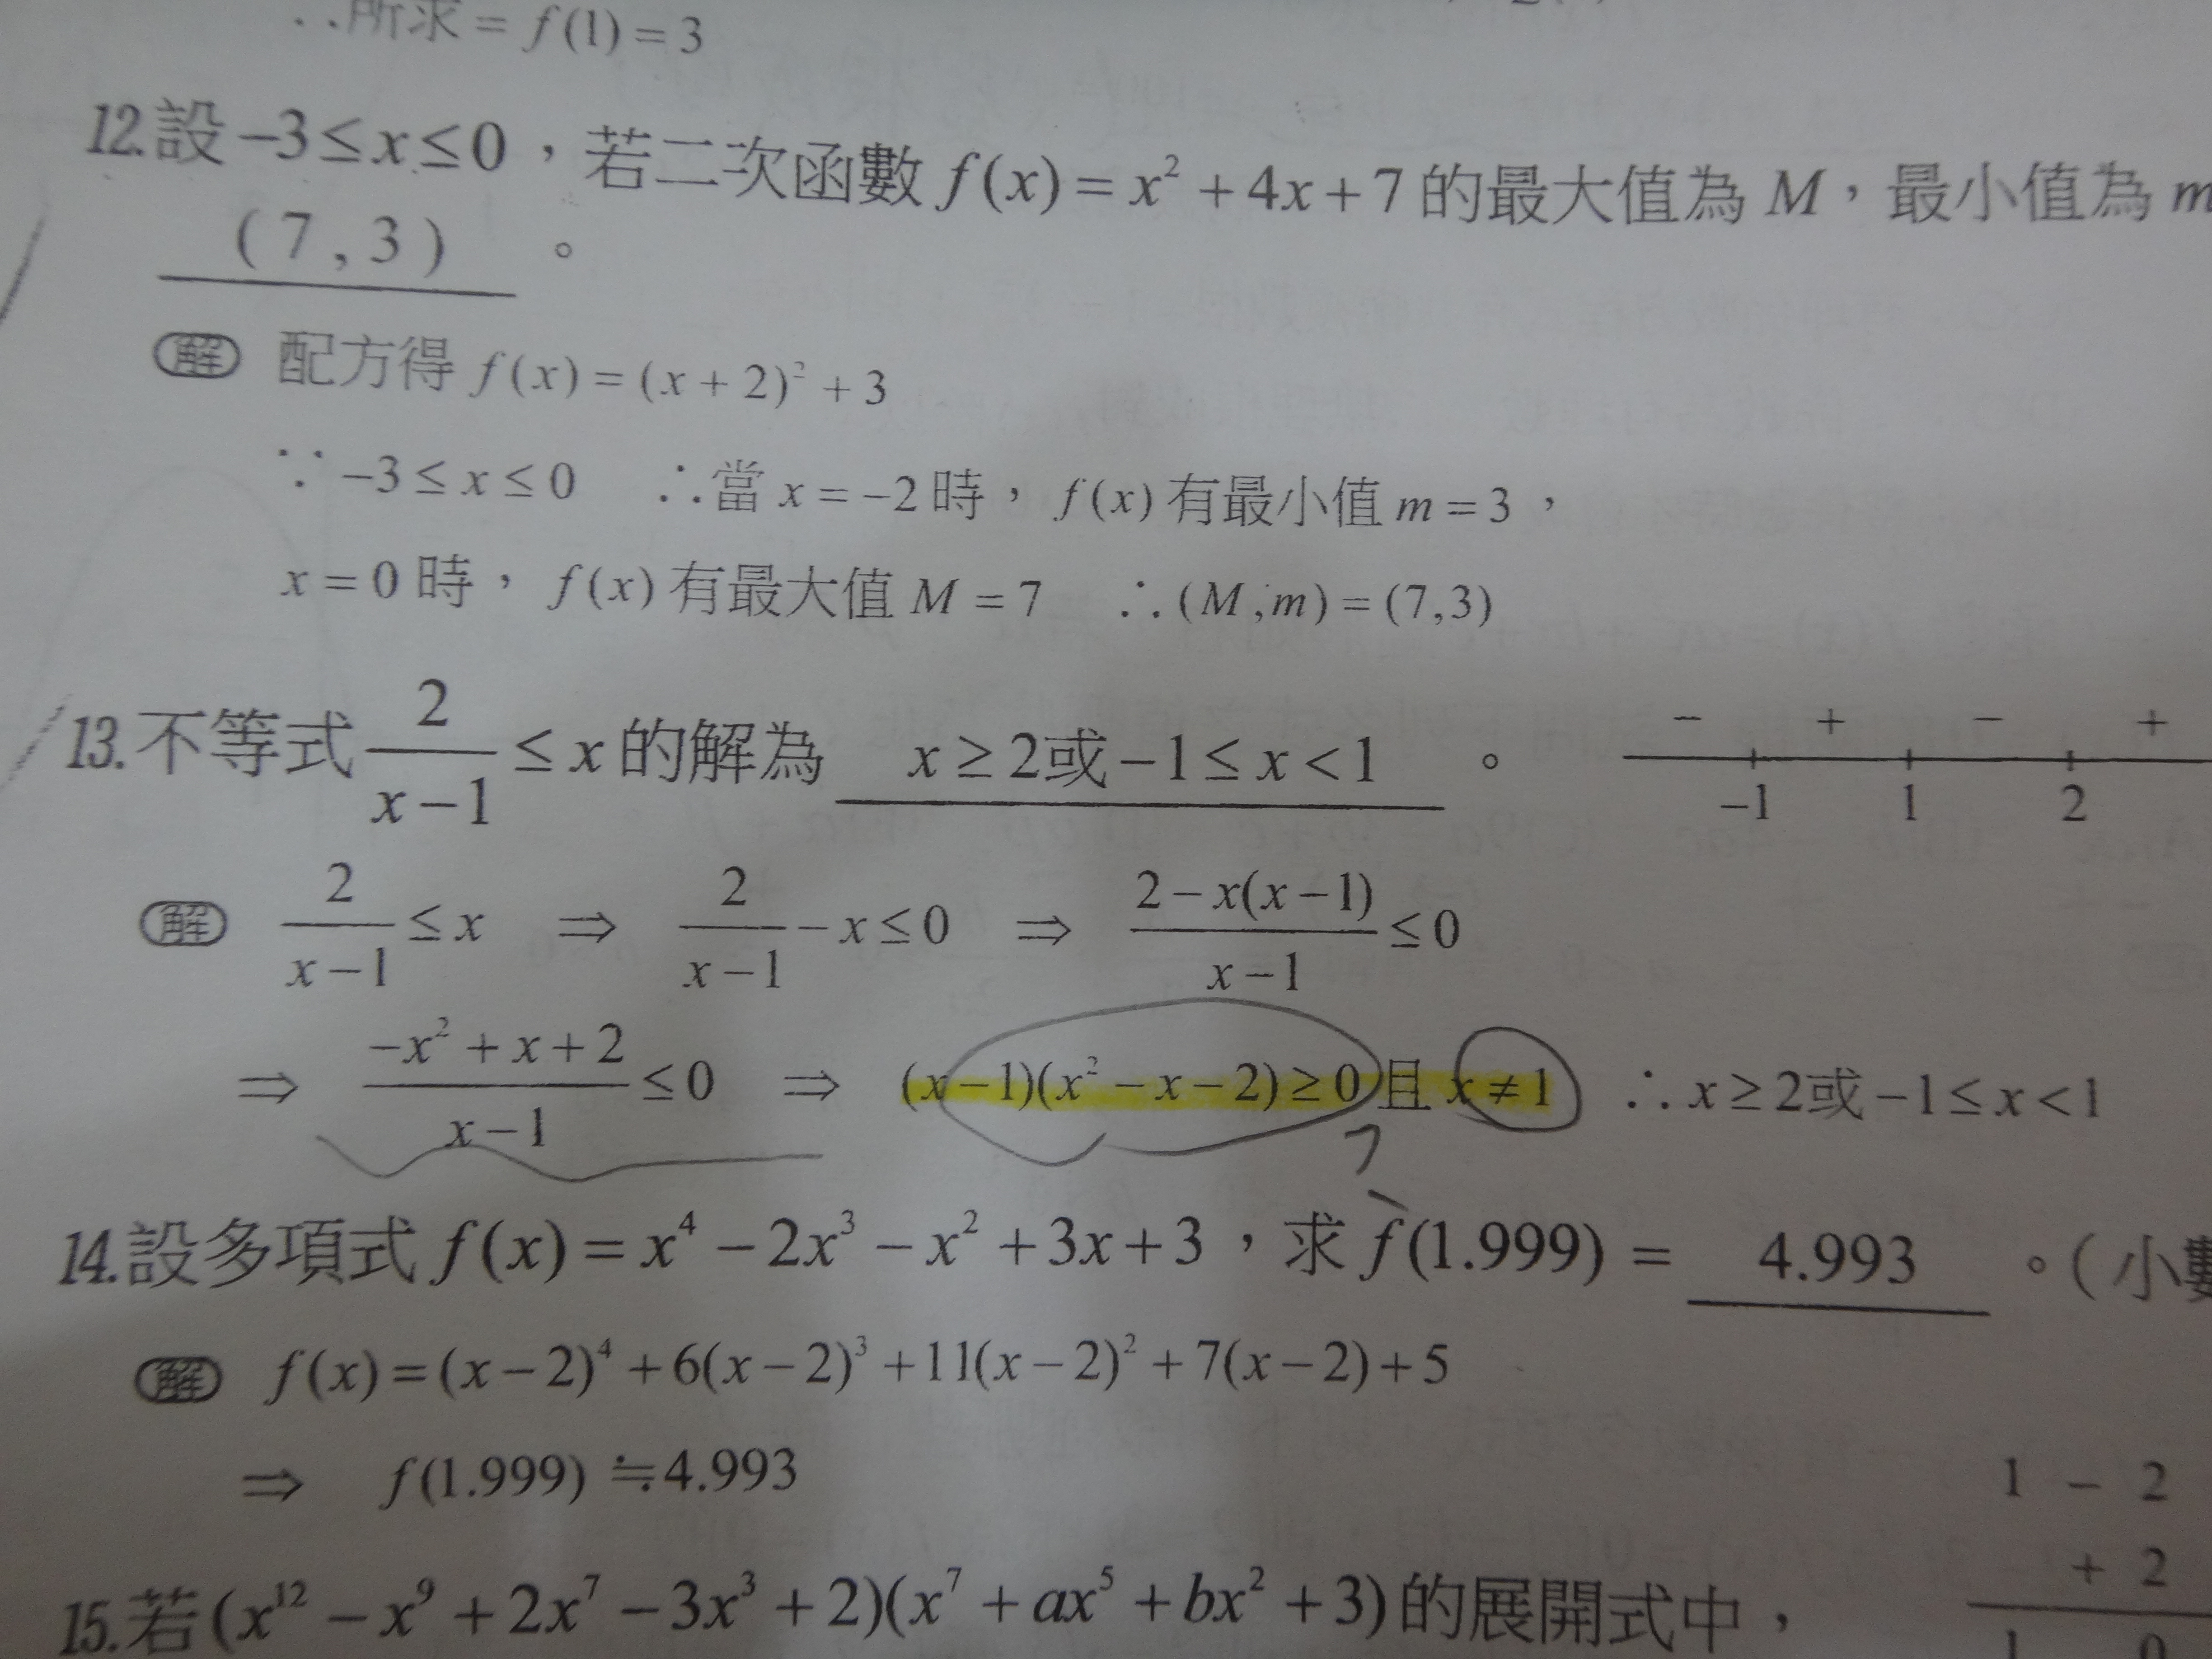 ∴所求 = f(1) = 3
12.設 −3 ≤ x ≤ 0，若二次函數 f(x) = x² + 4x + 7 的最大值為 M，最小值為 m
(7,3)。
解 配方得 f(x) = (x + 2)² + 3
∵ −3 ≤ x ≤ 0 ∴當 x = −2 時， f(x) 有最小值 m = 3，
x = 0 時， f(x) 有最大值 M = 7 ∴(M,m) = (7,3)
13.不等式 2/(x−1) ≤ x 的解為 x ≥ 2或−1 ≤ x < 1。
− + − +
−1 1 2
解 2/(x−1) ≤ x ⇒ 2/(x−1) − x ≤ 0 ⇒ (2−x(x−1))/(x−1) ≤ 0
⇒ (−x² + x + 2)/(x−1) ≤ 0 ⇒ (x−1)(x² − x − 2) ≥ 0 且 x ≠ 1 ∴ x ≥ 2或−1 ≤ x < 1
14.設多項式 f(x) = x⁴ − 2x³ − x² + 3x + 3，求 f(1.999) = 4.993。(小數
解 f(x) = (x−2)⁴ + 6(x−2)³ + 11(x−2)² + 7(x−2) + 5
⇒ f(1.999) ≒ 4.993
1 − 2
+ 2
1 0
15.若(x¹² − x⁹ + 2x⁷ − 3x³ + 2)(x⁷ + ax⁵ + bx² + 3)的展開式中，